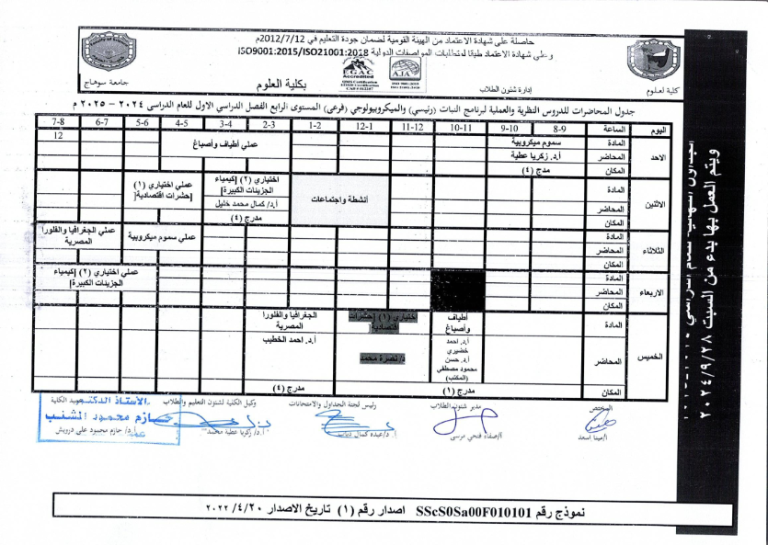 حاصلة على شهادة الاعتماد من الهيئة القومية لضمان جودة التعليم في 2012/7/12م
وعلى شهادة الاعتماد طبقا لمتطلبات المواصفات الدولية ISO9001:2015/ISO21001:2018
EGAC
Accredited
AJA
كلية العلوم
إدارة شئون الطلاب
بكلية العلوم
جامعة سوهاج
جدول المحاضرات للدروس النظرية والعملية لبرنامج النبات (رئيسي) والميكروبيولوجي (فرعي) المستوى الرابع الفصل الدراسي الاول للعام الدراسى ٢٠٢٤ – ٢٠٢٥ م
اليوم الساعة 8-9 9-10 10-11 11-12 12-1 1-2 2-3 3-4 4-5 5-6 6-7 7-8
12
الاحد
المادة سموم ميكروبية عملي أطياف وأصباغ
المحاضر أ.د. زكريا عطية
المكان مدرج (٤)
الاثنين
المادة أنشطة واجتماعات اختياري (٢) [كيمياء الجزيئات الكبيرة] عملي اختياري (١) [حشرات اقتصادية]
المحاضر أ.د/ كمال محمد خليل
المكان مدرج (٤)
الثلاثاء
المادة عملي سموم ميكروبية عملي الجغرافيا والفلورا المصرية
المحاضر
المكان
الاربعاء
المادة عملي اختياري (٢) [كيمياء الجزيئات الكبيرة]
المحاضر
المكان
الخميس
المادة أطياف وأصباغ اختياري (١) [حشرات اقتصادية] الجغرافيا والفلورا المصرية
المحاضر أ.د. احمد خضيري أ.د. حسن محمود مصطفي (المكتب) د/ نصرة محمد أ.د. احمد الخطيب
المكان مدرج (١) مدرج (٤)
المختص
مدير شئون الطلاب
رئيس لجنة الجداول والامتحانات
وكيل الكلية لشئون التعليم والطلاب
عميد الكلية
أ/صفاء فتحي مرسى
أ.د/ زكريا عطية محمد
أ.د/ حازم محمود على درويش
الأستاذ الدكتور
حازم محمود المشنب
ويتم العمل بها بدء من السبت ٢٠٢٤/٩/٢٨
نموذج رقم SScS0Sa00F010101 اصدار رقم (١) تاريخ الاصدار ٢٠/٤/٢٠٢٢